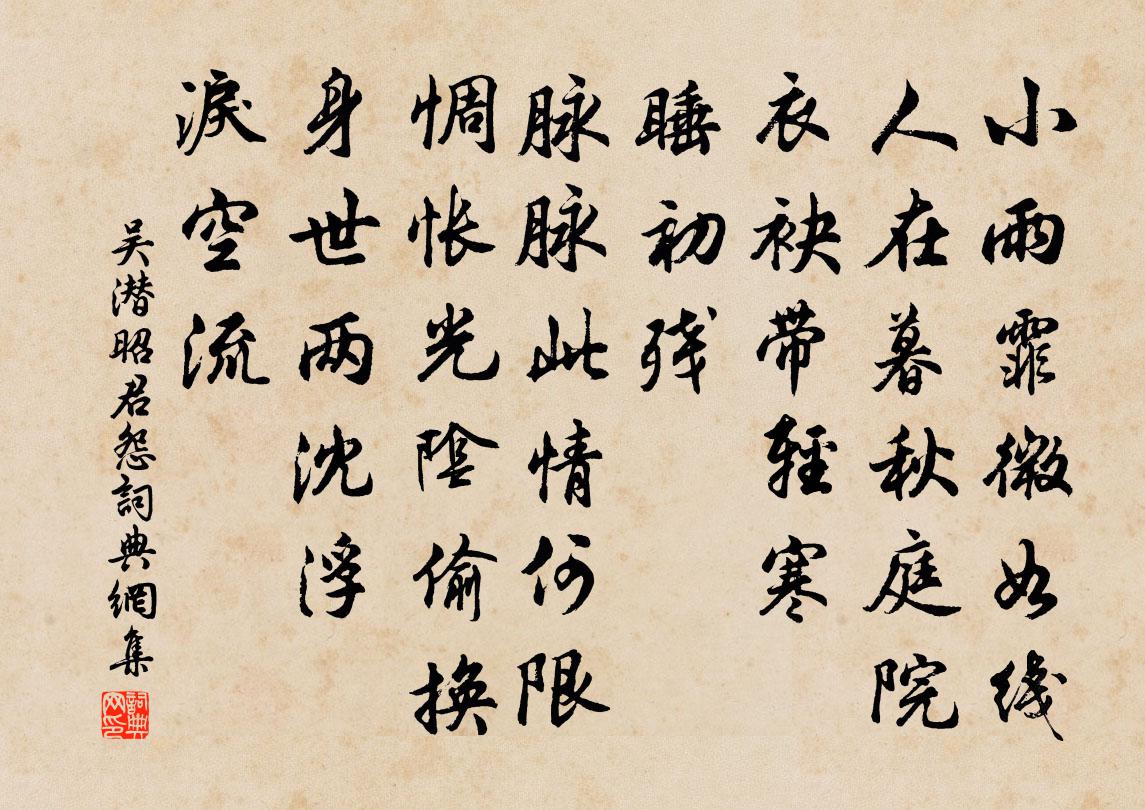 小雨霏微如线
人在暮秋庭院
衣袂带轻寒
睡初残
脉脉此情何限
惆怅光阴偷换
身世两沈浮
淚空流
吴潜昭君怨詞典網集
詞典网印